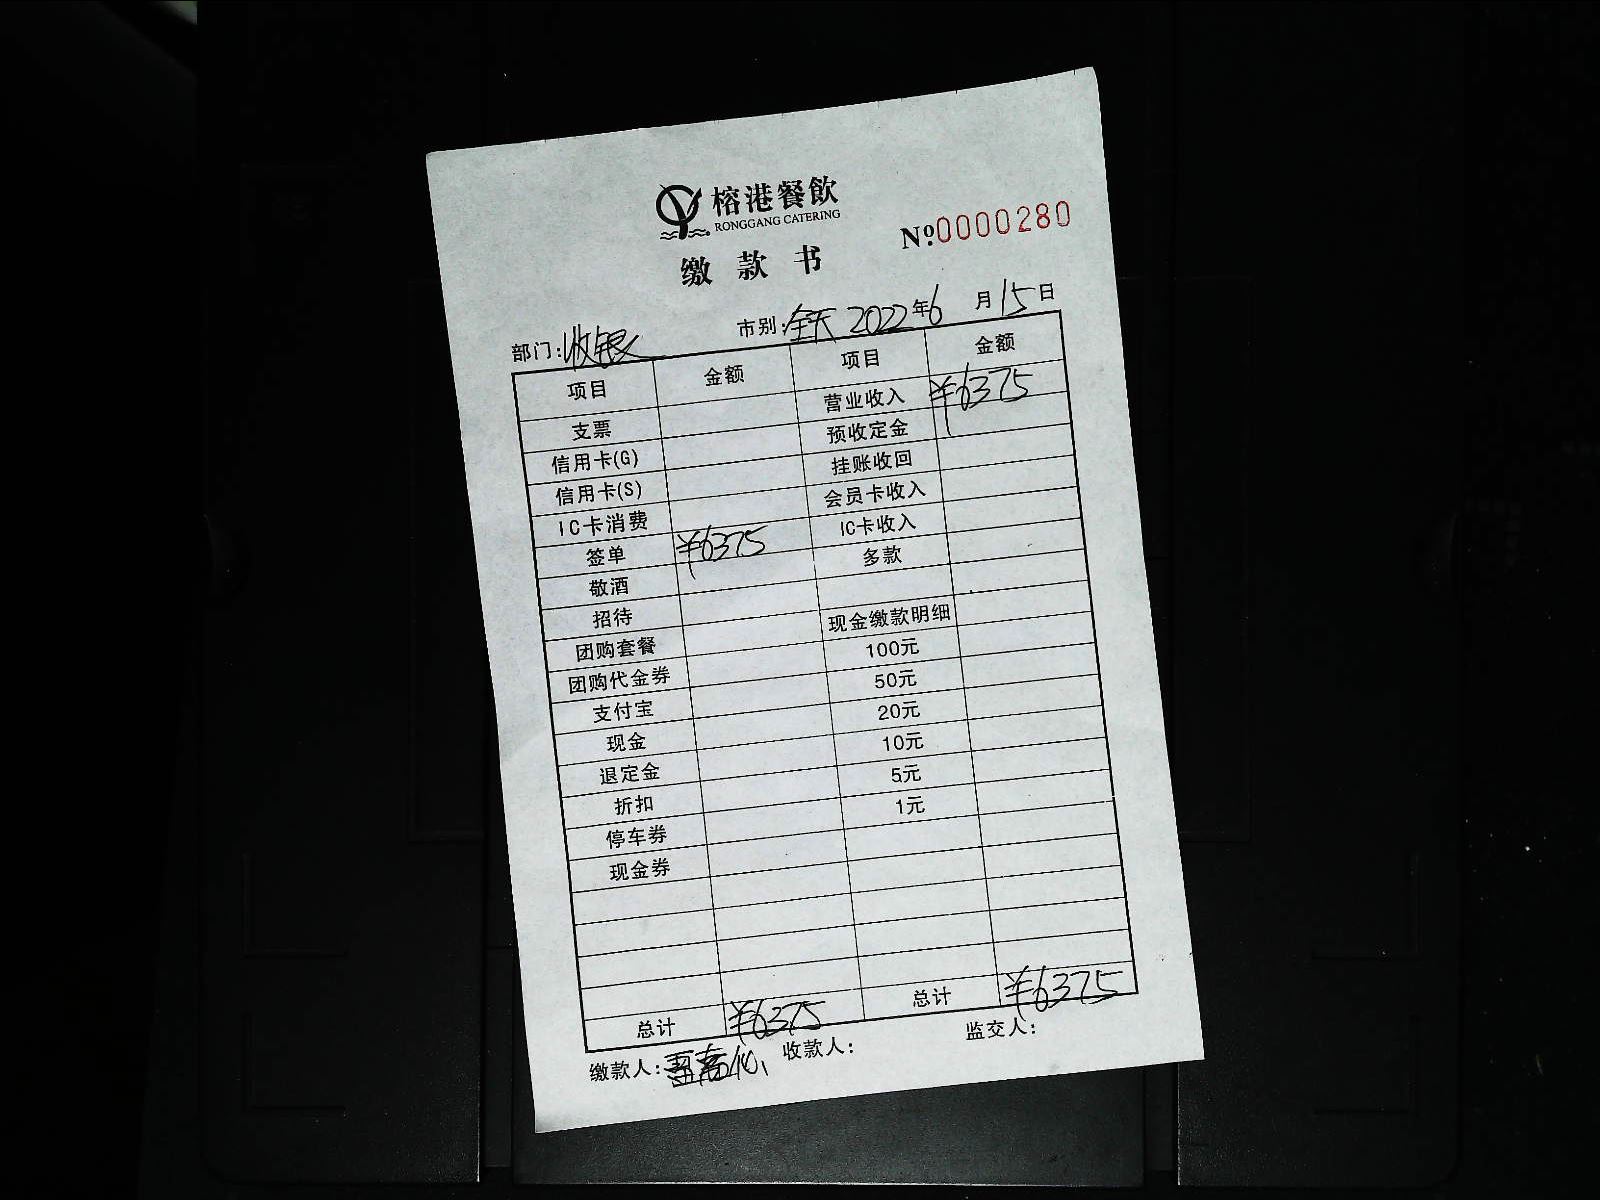 榕港餐飲
RONGGANG CATERING
№0000280
缴款书
部门:收银 市别:全天 2022年6月15日
项目 金额 项目 金额
支票 营业收入 ¥6375
信用卡(G) 预收定金
信用卡(S) 挂账收回
IC卡消费 会员卡收入
签单 ¥6375 IC卡收入
敬酒 多款
招待
团购套餐 现金缴款明细
团购代金券 100元
支付宝 50元
现金 20元
退定金 10元
折扣 5元
停车券 1元
现金券
总计 ¥6375 总计 ¥6375
缴款人: 收款人: 监交人: